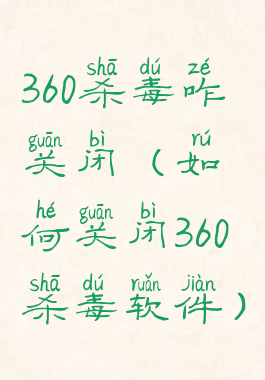 shā dú zé
360杀毒咋
guān bì rú
关闭(如
hé guān bì
何关闭360
shā dú ruǎn jiàn
杀毒软件)